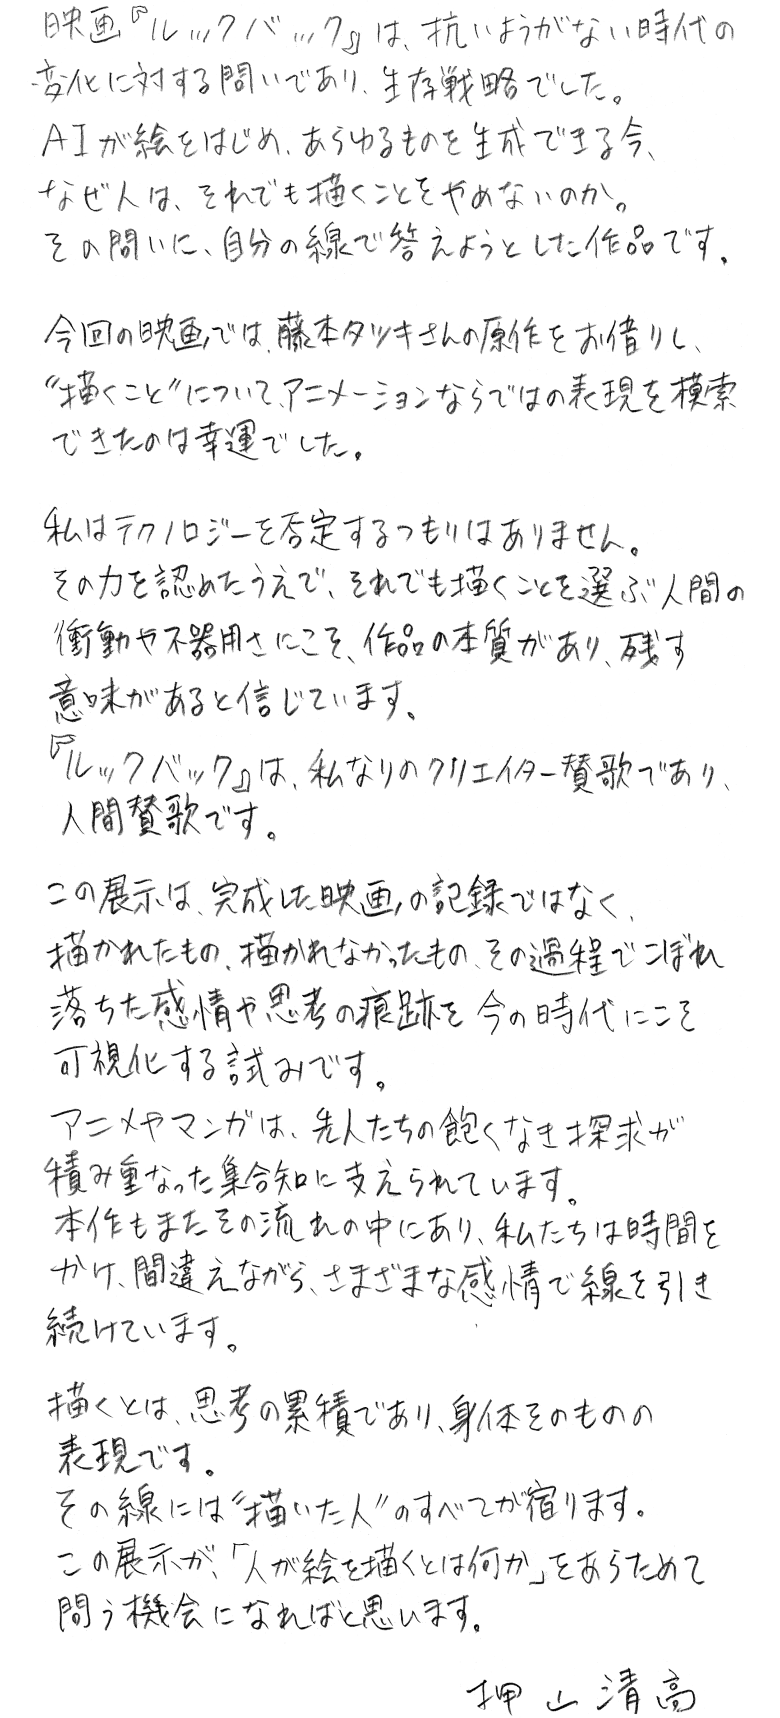 映画『ルックバック』は、抗いようがない時代の
変化に対する問いであり、生存戦略でした。
AIが絵をはじめ、あらゆるものを生成できる今、
なぜ人は、それでも描くことをやめないのか。
その問いに、自分の線で答えようとした作品です。
今回の映画では、藤本タツキさんの原作をお借りし、
“描くこと”について、アニメーションならではの表現を模索
できたのは幸運でした。
私はテクノロジーを否定するつもりはありません。
その力を認めたうえで、それでも描くことを選ぶ人間の
衝動や不器用さにこそ、作品の本質があり、残す
意味があると信じています。
『ルックバック』は、私なりのクリエイター賛歌であり、
人間賛歌です。
この展示は、完成した映画の記録ではなく、
描かれたもの、描かれなかったもの、その過程でこぼれ
落ちた感情や思考の痕跡を今の時代にこそ
可視化する試みです。
アニメやマンガは、先人たちの飽くなき探求が
積み重なった集合知に支えられています。
本作もまたその流れの中にあり、私たちは時間を
かけ、間違えながら、さまざまな感情で線を引き
続けています。
描くとは、思考の累積であり、身体そのものの
表現です。
その線には“描いた人”のすべてが宿ります。
この展示が、「人が絵を描くとは何か」をあらためて
問う機会になればと思います。
押山清高